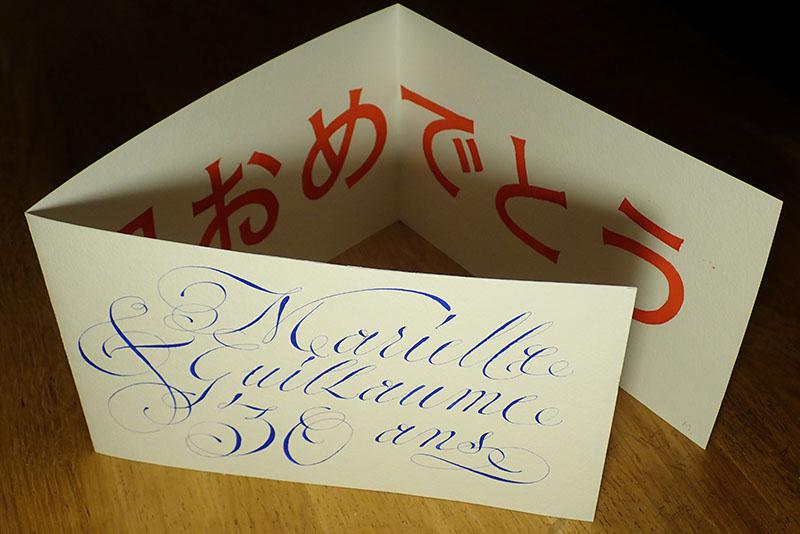 おめでとう
Marielle
& Guillaume
30 ans